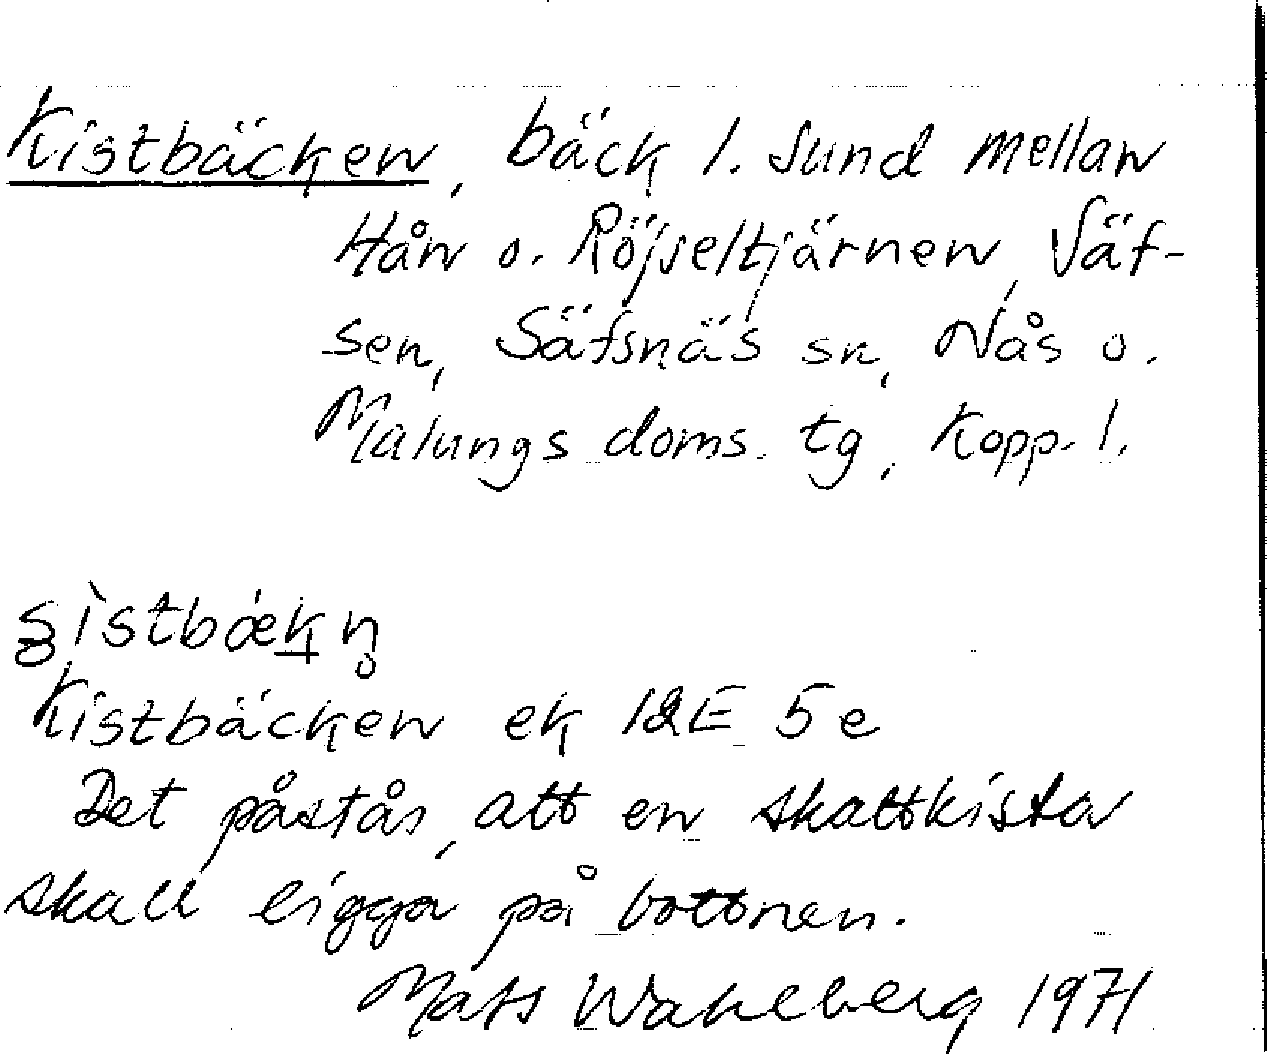 Kistbäcken, bäck l. sund mellan
Hån o. Röjseltjärnen, Säf-
sen, Säfsnäs sn, Nås o.
Malungs doms. tg, Kopp. l.
Kistbäcken ek 12E 5e
Det påstås, att en skattkista
skall ligga på bottnen.
Mats Wahlberg 1971